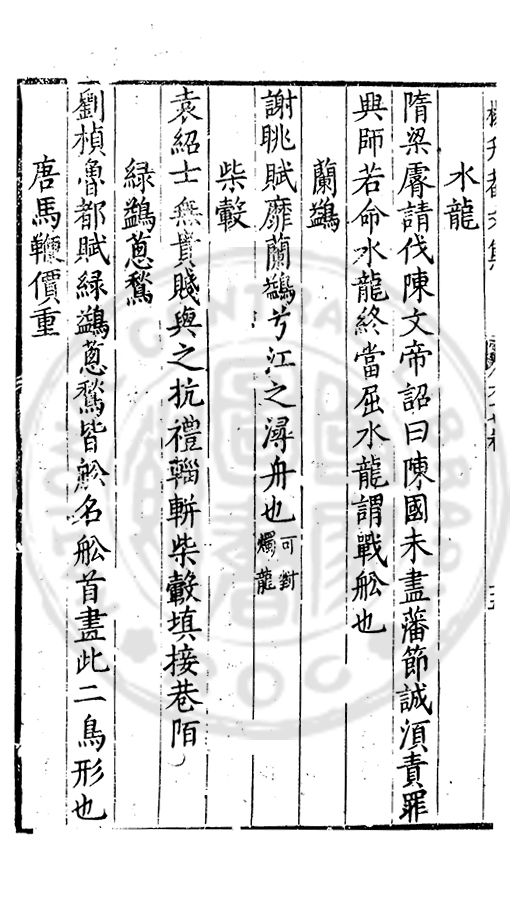 水龍
隋梁睿請伐陳文帝詔曰陳國未盡藩節誠須責罪
興師若命水龍終當屈水龍謂戰舩也
蘭鷁
謝眺賦靡蘭鷁兮江之潯舟也可對燭龍
柴轂
袁紹士無貴賤與之抗禮輜軿柴轂填接巷陌
綠鷁蔥鶖
劉楨魯都賦綠鷁蔥鶖皆舩名舩首畫此二鳥形也
唐馬鞭價重
CENTRAL
ROC